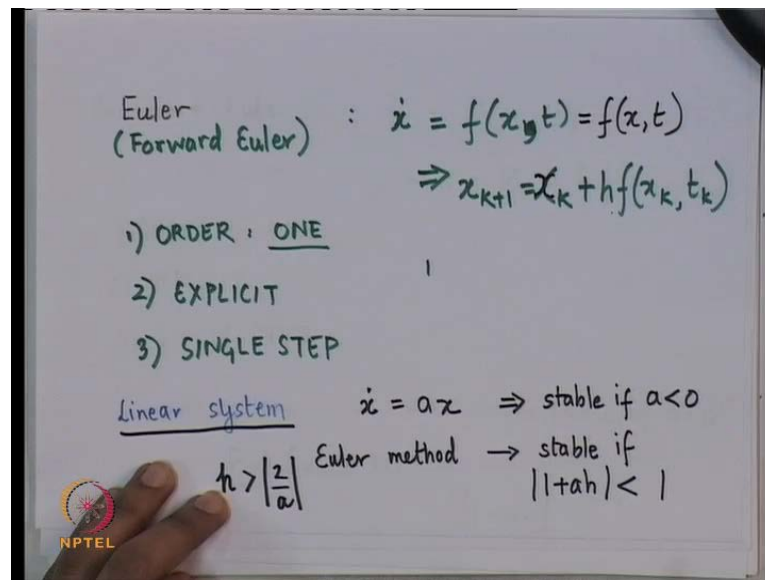 Euler : ẋ = f(x,t) = f(x,t)
(Forward Euler)
⇒ x_{k+1} = x_k + hf(x_k, t_k)
1) ORDER : ONE
2) EXPLICIT
3) SINGLE STEP
Linear system ẋ = ax ⇒ stable if a<0
Euler method → stable if
h > |2/a| |1+ah| < 1
NPTEL